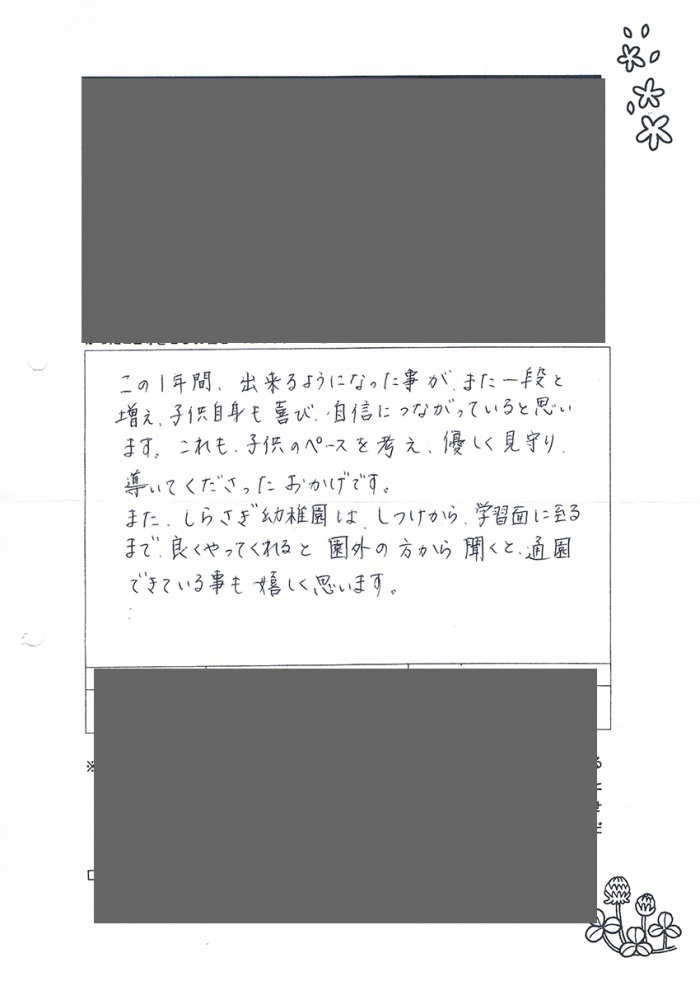 この1年間、出来るようになった事が、また一段と
増え、子供自身も喜び、自信につながっていると思い
ます。これも、子供のペースを考え、優しく見守り、
導いてくださったおかげです。
また、しらさぎ幼稚園は、しつけから、学習面に至る
まで、良くやってくれると園外の方から聞くと、通園
できている事も嬉しく思います。